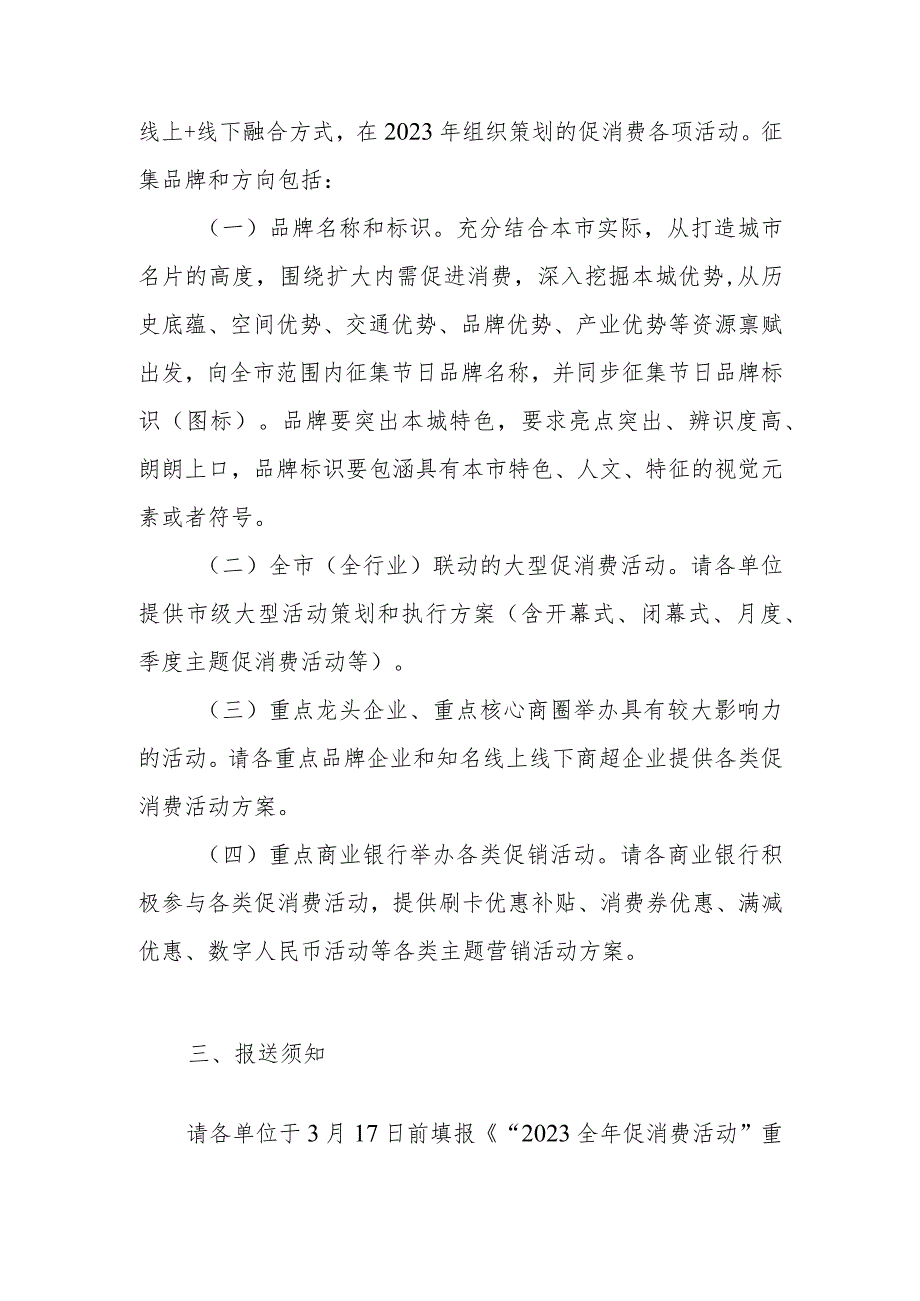 线上+线下融合方式，在 2023 年组织策划的促消费各项活动。征
集品牌和方向包括：
（一）品牌名称和标识。充分结合本市实际，从打造城市
名片的高度，围绕扩大内需促进消费，深入挖掘本城优势,从历
史底蕴、空间优势、交通优势、品牌优势、产业优势等资源禀赋
出发，向全市范围内征集节日品牌名称，并同步征集节日品牌标
识（图标）。品牌要突出本城特色，要求亮点突出、辨识度高、
朗朗上口，品牌标识要包涵具有本市特色、人文、特征的视觉元
素或者符号。
（二）全市（全行业）联动的大型促消费活动。请各单位
提供市级大型活动策划和执行方案（含开幕式、闭幕式、月度、
季度主题促消费活动等）。
（三）重点龙头企业、重点核心商圈举办具有较大影响力
的活动。请各重点品牌企业和知名线上线下商超企业提供各类促
消费活动方案。
（四）重点商业银行举办各类促销活动。请各商业银行积
极参与各类促消费活动，提供刷卡优惠补贴、消费券优惠、满减
优惠、数字人民币活动等各类主题营销活动方案。
三、报送须知
请各单位于 3 月 17 日前填报《“2023 全年促消费活动”重